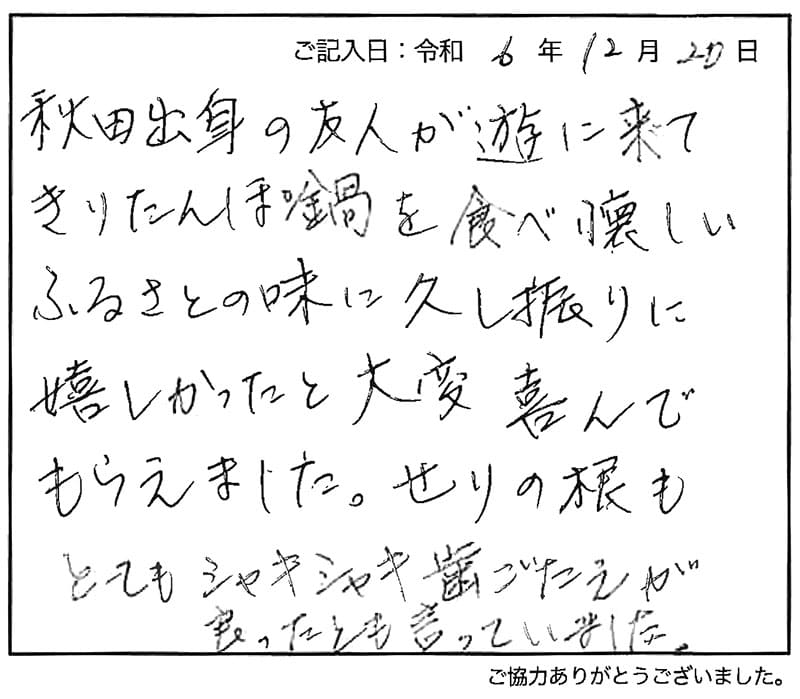 ご記入日：令和 6 年 12 月 20 日
秋田出身の友人が遊に来て
きりたんぽ鍋を食べ懐しい
ふるさとの味に久し振りに
嬉しかったと大変喜んで
もらえました。せりの根も
とてもシャキシャキ歯ごたえが
良ったとも言っていました。
ご協力ありがとうございました。